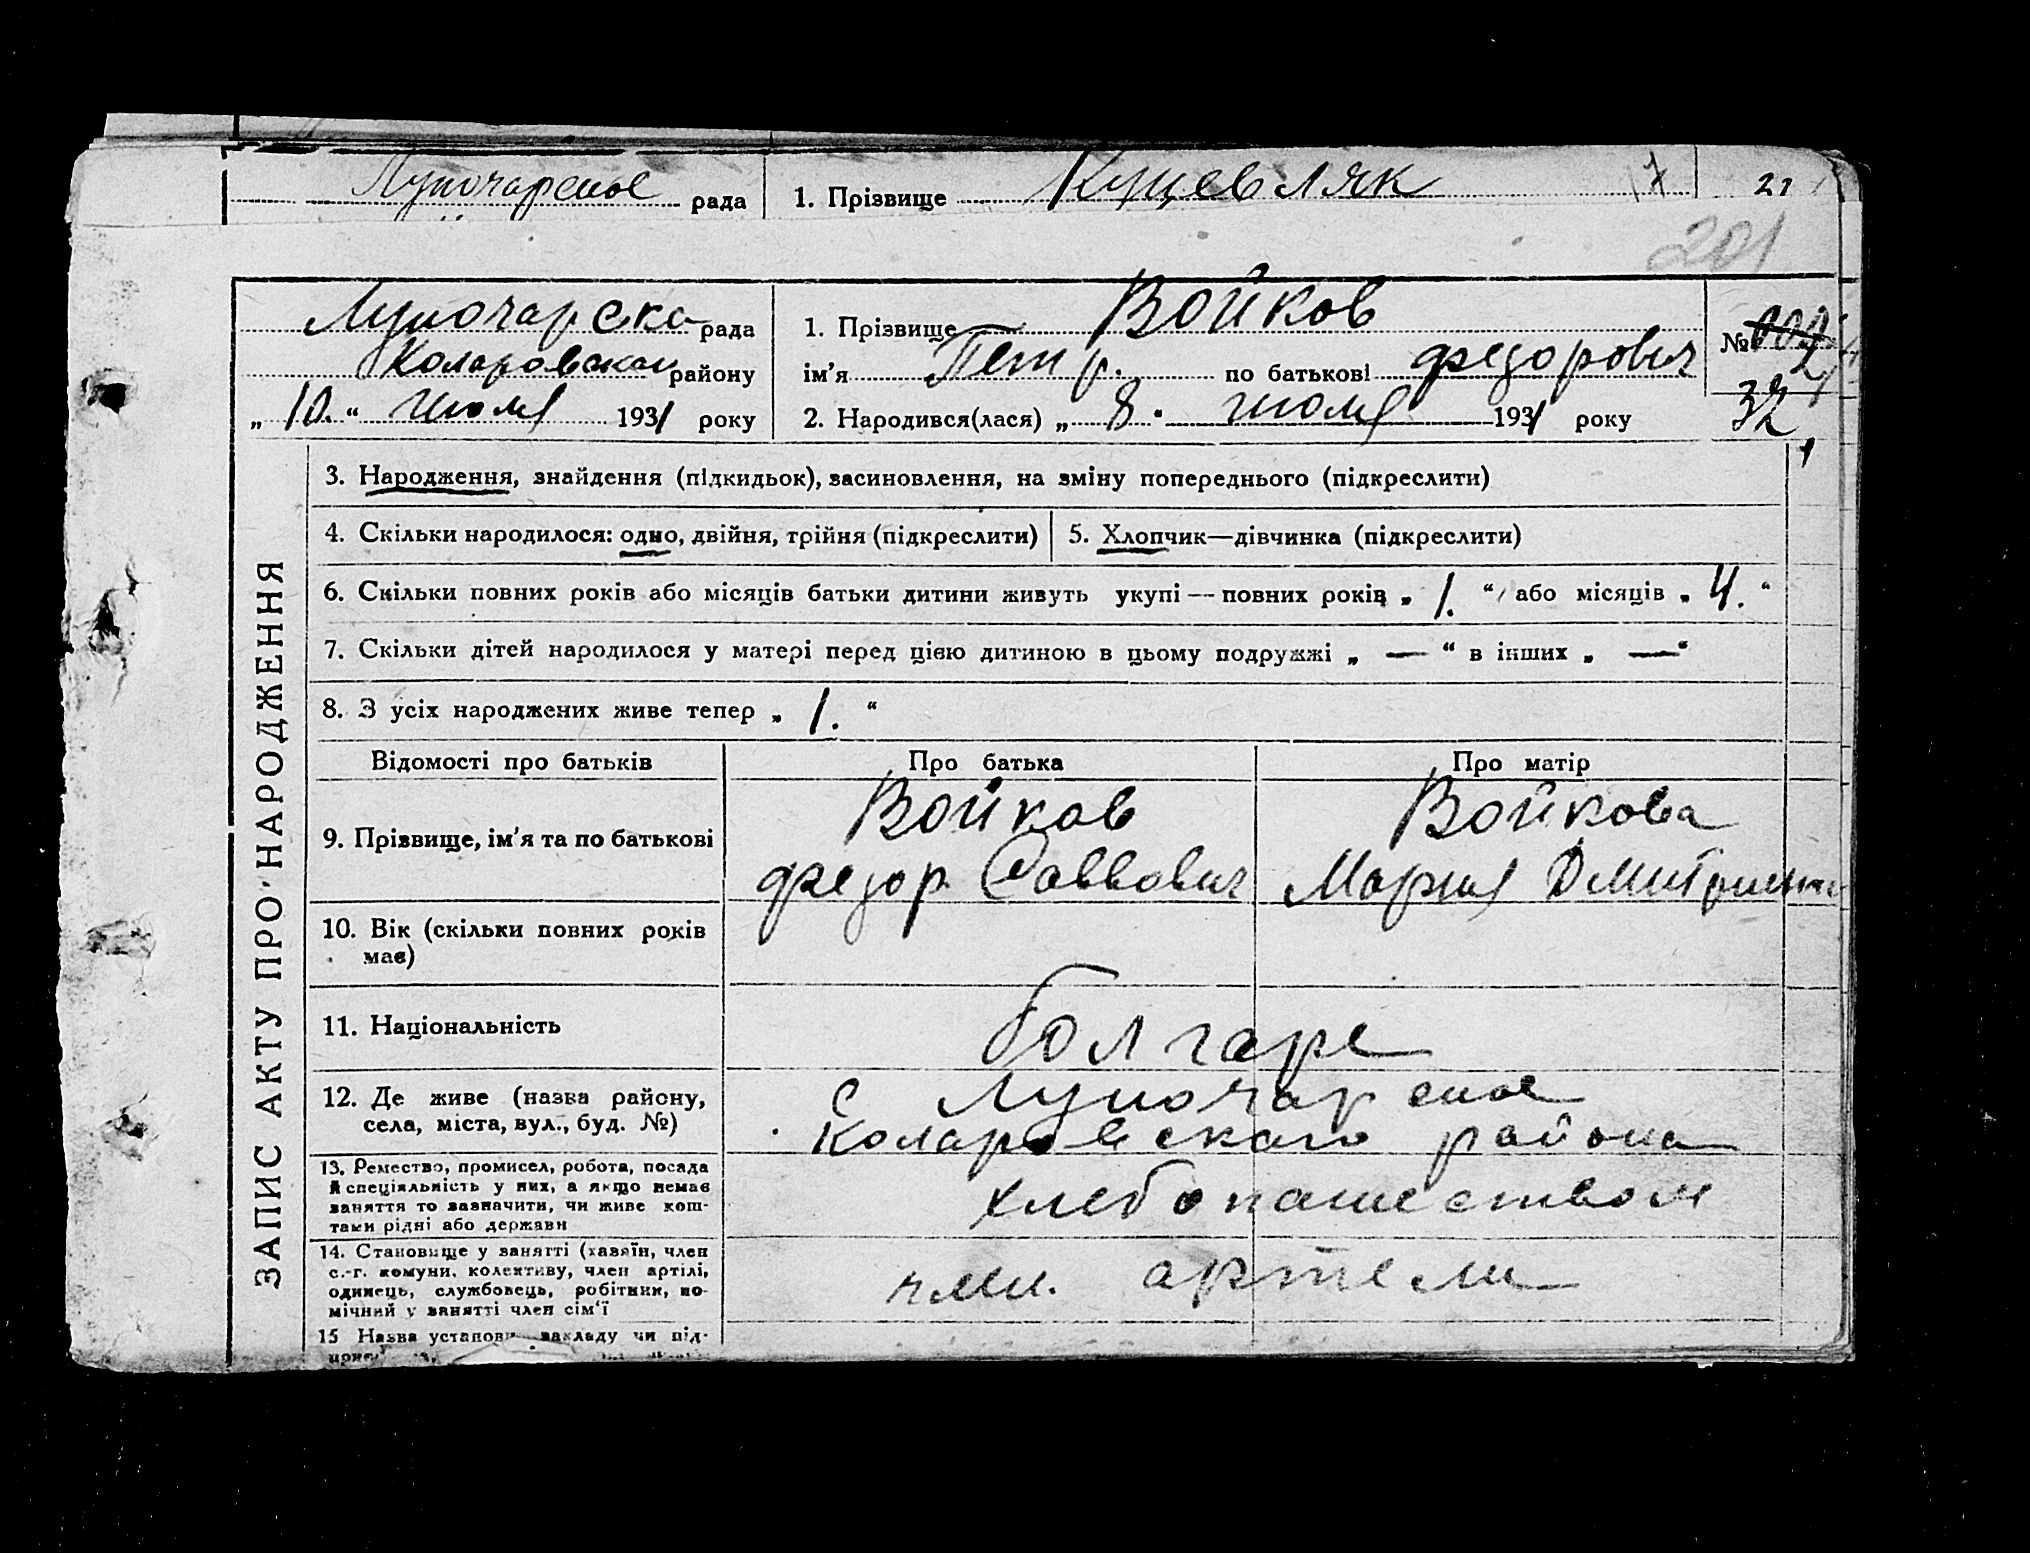 Луночарское рада 1. Прізвище Куцевляк 17 21
201
Луночарска рада 1. Прізвище Войков №
Коларовская району ім'я Петр. по батькові Федорович
„ 10. “ июля 1931 року 2. Народився(лася) „ 8 “ июля 1931 року 32
3. Народження, знайдення (підкидьок), засиновлення, на зміну попереднього (підкреслити)
4. Скільки народилося: одно, двійня, трійня (підкреслити) 5. Хлопчик—дівчинка (підкреслити)
6. Скільки повних років або місяців батьки дитини живуть укупі — повних років „ 1. “ або місяців „ 4. “
7. Скільки дітей народилося у матері перед цією дитиною в цьому подружжі „ — “ в інших „ — “
8. З усіх народжених живе тепер „ 1. “
Відомості про батьків Про батька Про матір
9. Прізвище, ім'я та по батькові
Войков
Федор Саввович
Войкова
Мария
10. Вік (скільки повних років
має)
11. Національність
болгаре
12. Де живе (назва району,
села, міста, вул., буд. №)
с Луночарское
Коларовского района
13. Ремество, промисел, робота, посада
й спеціяльність у них, а якщо немає
заняття то зазначити, чи живе кош-
тами рідні або держави
хлебопашеством
14. Становище у занятті (хазяїн, член
с.-г. комуни, колективу, член артілі,
одинець, службовець, робітник, по-
мічний у занятті член сім'ї
член. артели
15 Назва установи, закладу чи під-
ЗАПИС АКТУ ПРО НАРОДЖЕННЯ